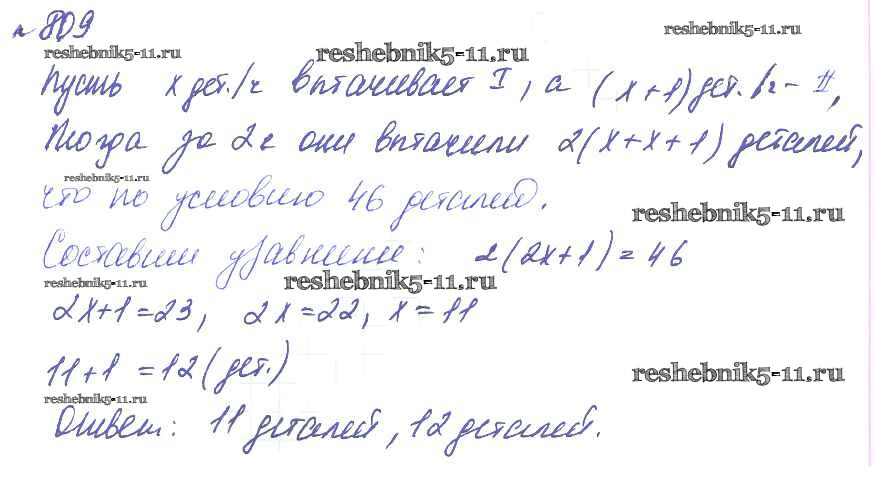 № 809
reshebnik5-11.ru
reshebnik5-11.ru
reshebnik5-11.ru
Пусть х дет./ч вытачивает I, а (х+1) дет./ч – II,
Тогда за 2ч они выточили 2(х+х+1) деталей,
reshebnik5-11.ru
что по условию 46 деталей.
reshebnik5-11.ru
Составим уравнение: 2(2х+1)=46
reshebnik5-11.ru
reshebnik5-11.ru
2х+1=23, 2х=22, х=11
11+1=12(дет.)
reshebnik5-11.ru
reshebnik5-11.ru
Ответ: 11 деталей, 12 деталей.